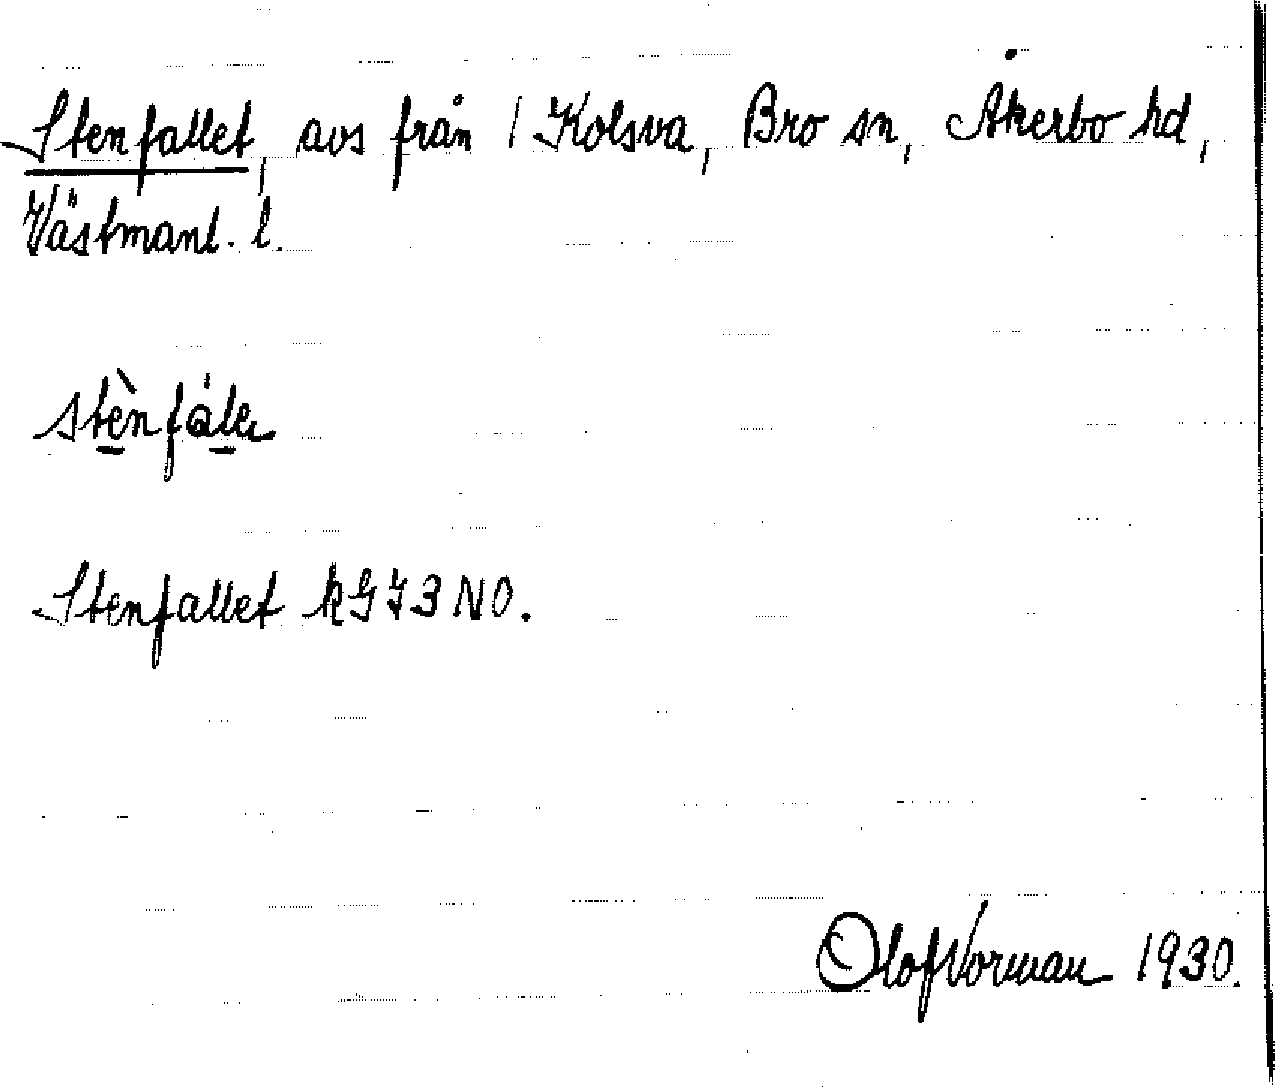 Stenfallet, avs från 1 Kolsva, Bro sn, Åkerbo hd,
Västmanl. l.
stènfále
Stenfallet kGJ3NO.
Olof Norman 1930.